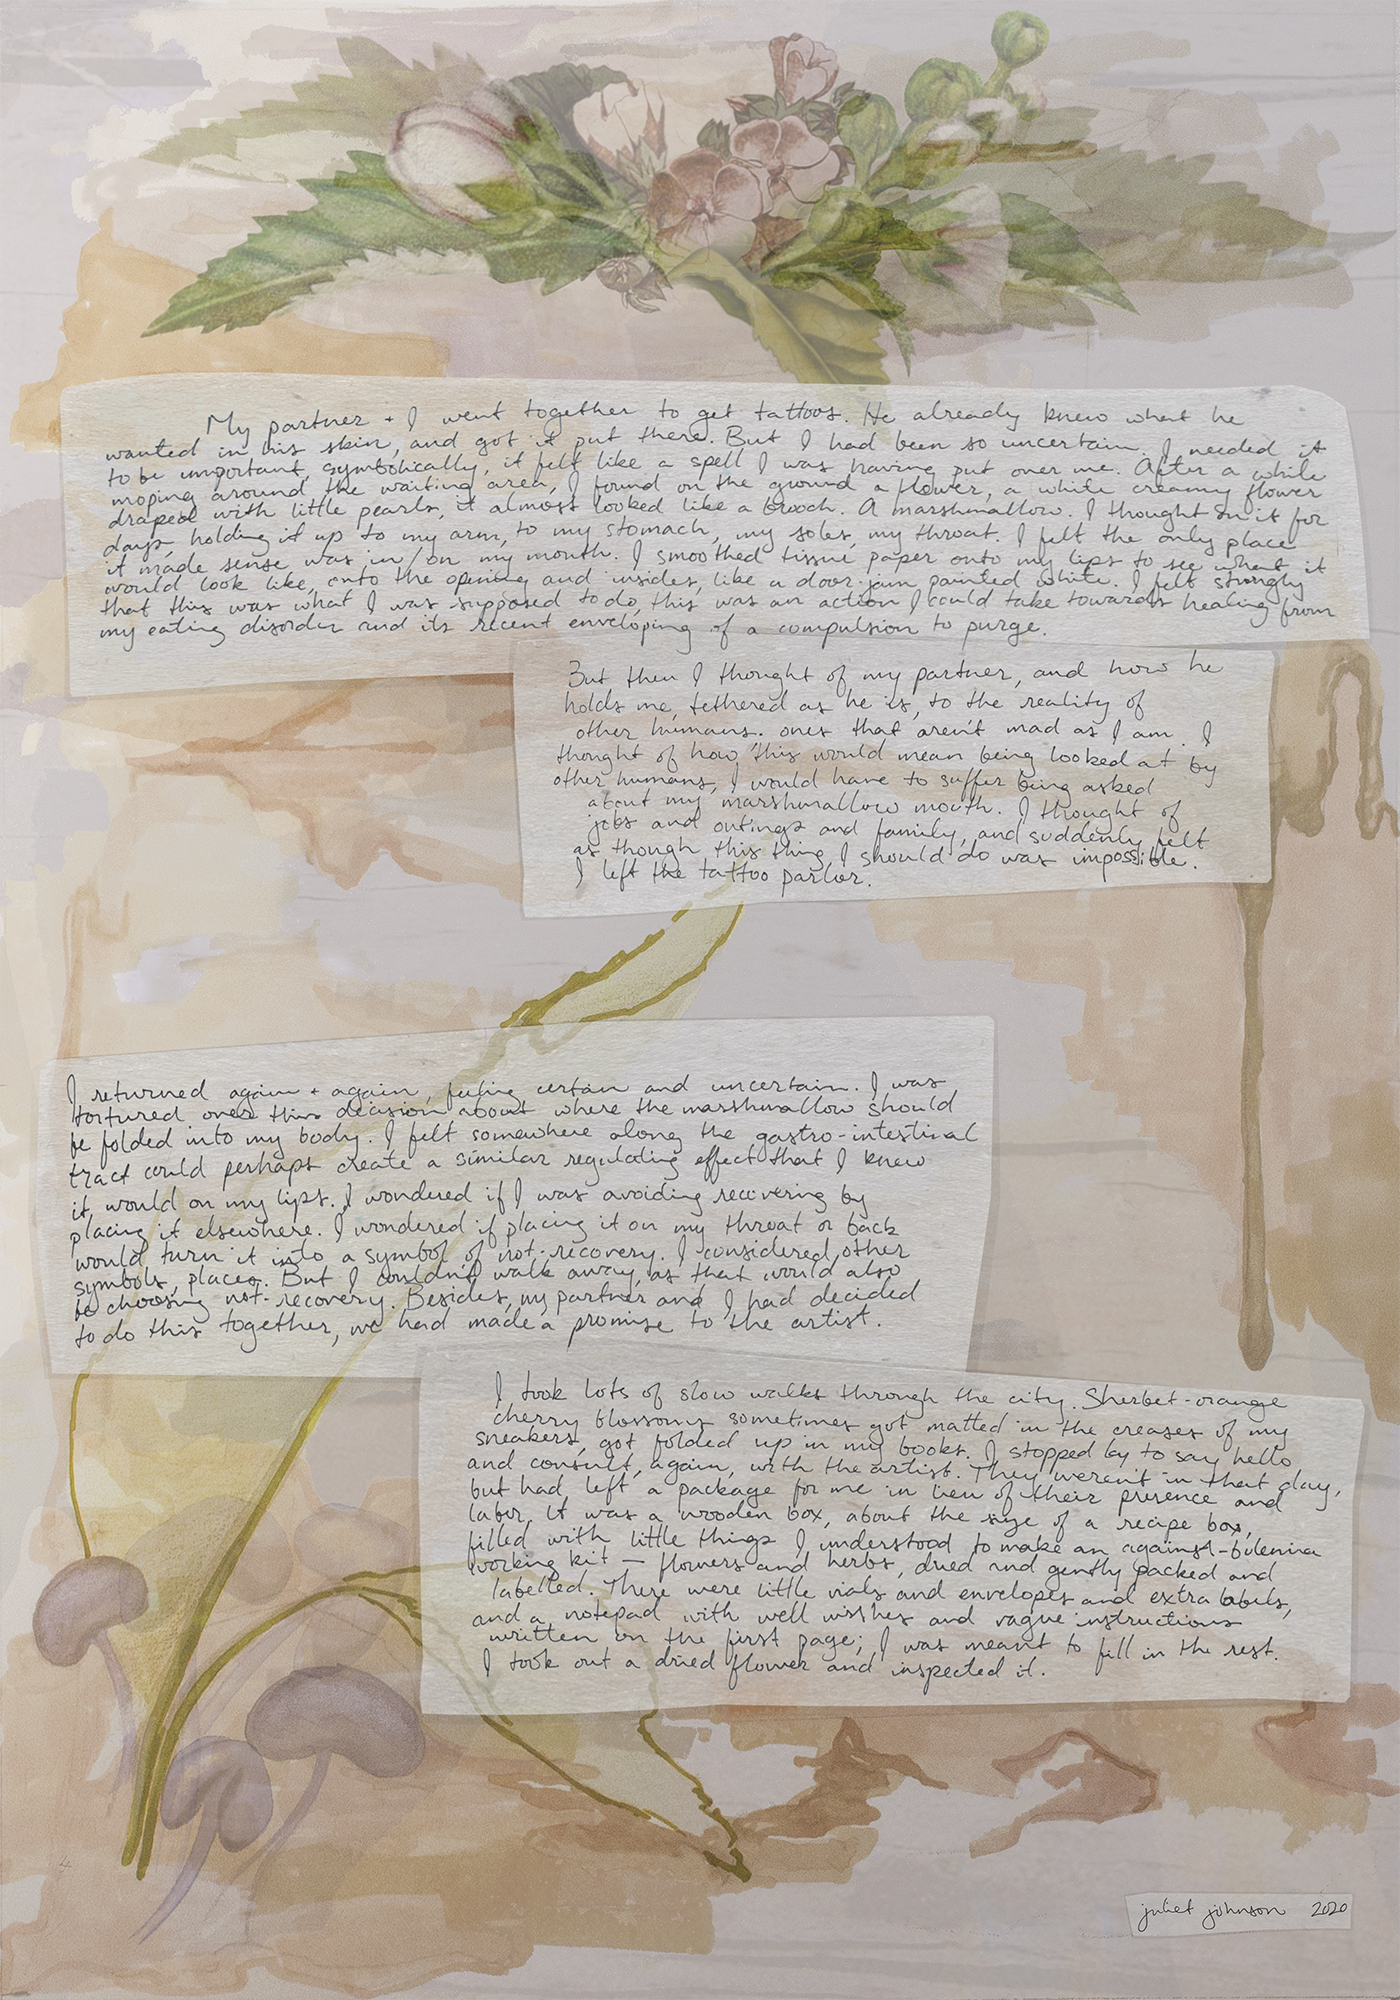 My partner + I went together to get tattoos. He already knew what he
wanted in his skin, and got it put there. But I had been so uncertain. I needed it
to be important, symbolically, it felt like a spell I was having put over me. After a while
moping around the waiting area, I found on the ground a flower, a white creamy flower
draped with little pearls, it almost looked like a brooch. A marshmallow. I thought on it for
days, holding it up to my arm, to my stomach, my soles, my throat. I felt the only place
it made sense was in/on my mouth. I smoothed tissue paper onto my lips to see what it
would look like, onto the opening and insides, like a door-jam painted white. I felt strongly
that this was what I was supposed to do, this was an action I could take towards healing from
my eating disorder and its recent enveloping of a compulsion to purge.
But then I thought of my partner, and how he
holds me, tethered as he is, to the reality of
other humans. ones that aren't mad as I am. I
thought of how this would mean being looked at by
other humans, I would have to suffer being asked
about my marshmallow mouth. I thought of
jobs and outings and family, and suddenly felt
as though this thing I should do was impossible.
I left the tattoo parlor.
I returned again + again, feeling certain and uncertain. I was
tortured over this decision about where the marshmallow should
be folded into my body. I felt somewhere along the gastro-intestinal
tract could perhaps create a similar regulating effect that I knew
it would on my lips. I wondered if I was avoiding recovering by
placing it elsewhere. I wondered if placing it on my throat or back
would turn it into a symbol of not-recovery. I considered other
symbols, places. But I couldn't walk away, as that would also
be choosing not-recovery. Besides, my partner and I had decided
to do this together, we had made a promise to the artist.
I took lots of slow walks through the city. Sherbet-orange
cherry blossoms sometimes got matted in the creases of my
sneakers, got folded up in my books. I stopped by to say hello
and consult, again, with the artist. They weren't in that day,
but had left a package for me in lieu of their presence and
labor. It was a wooden box, about the size of a recipe box,
filled with little things I understood to make an against-bulemia
working kit — flowers and herbs, dried and gently packed and
labelled. There were little vials and envelopes and extra labels,
and a notepad with well wishes and vague instructions
written on the first page; I was meant to fill in the rest.
I took out a dried flower and inspected it.
juliet johnson 2020